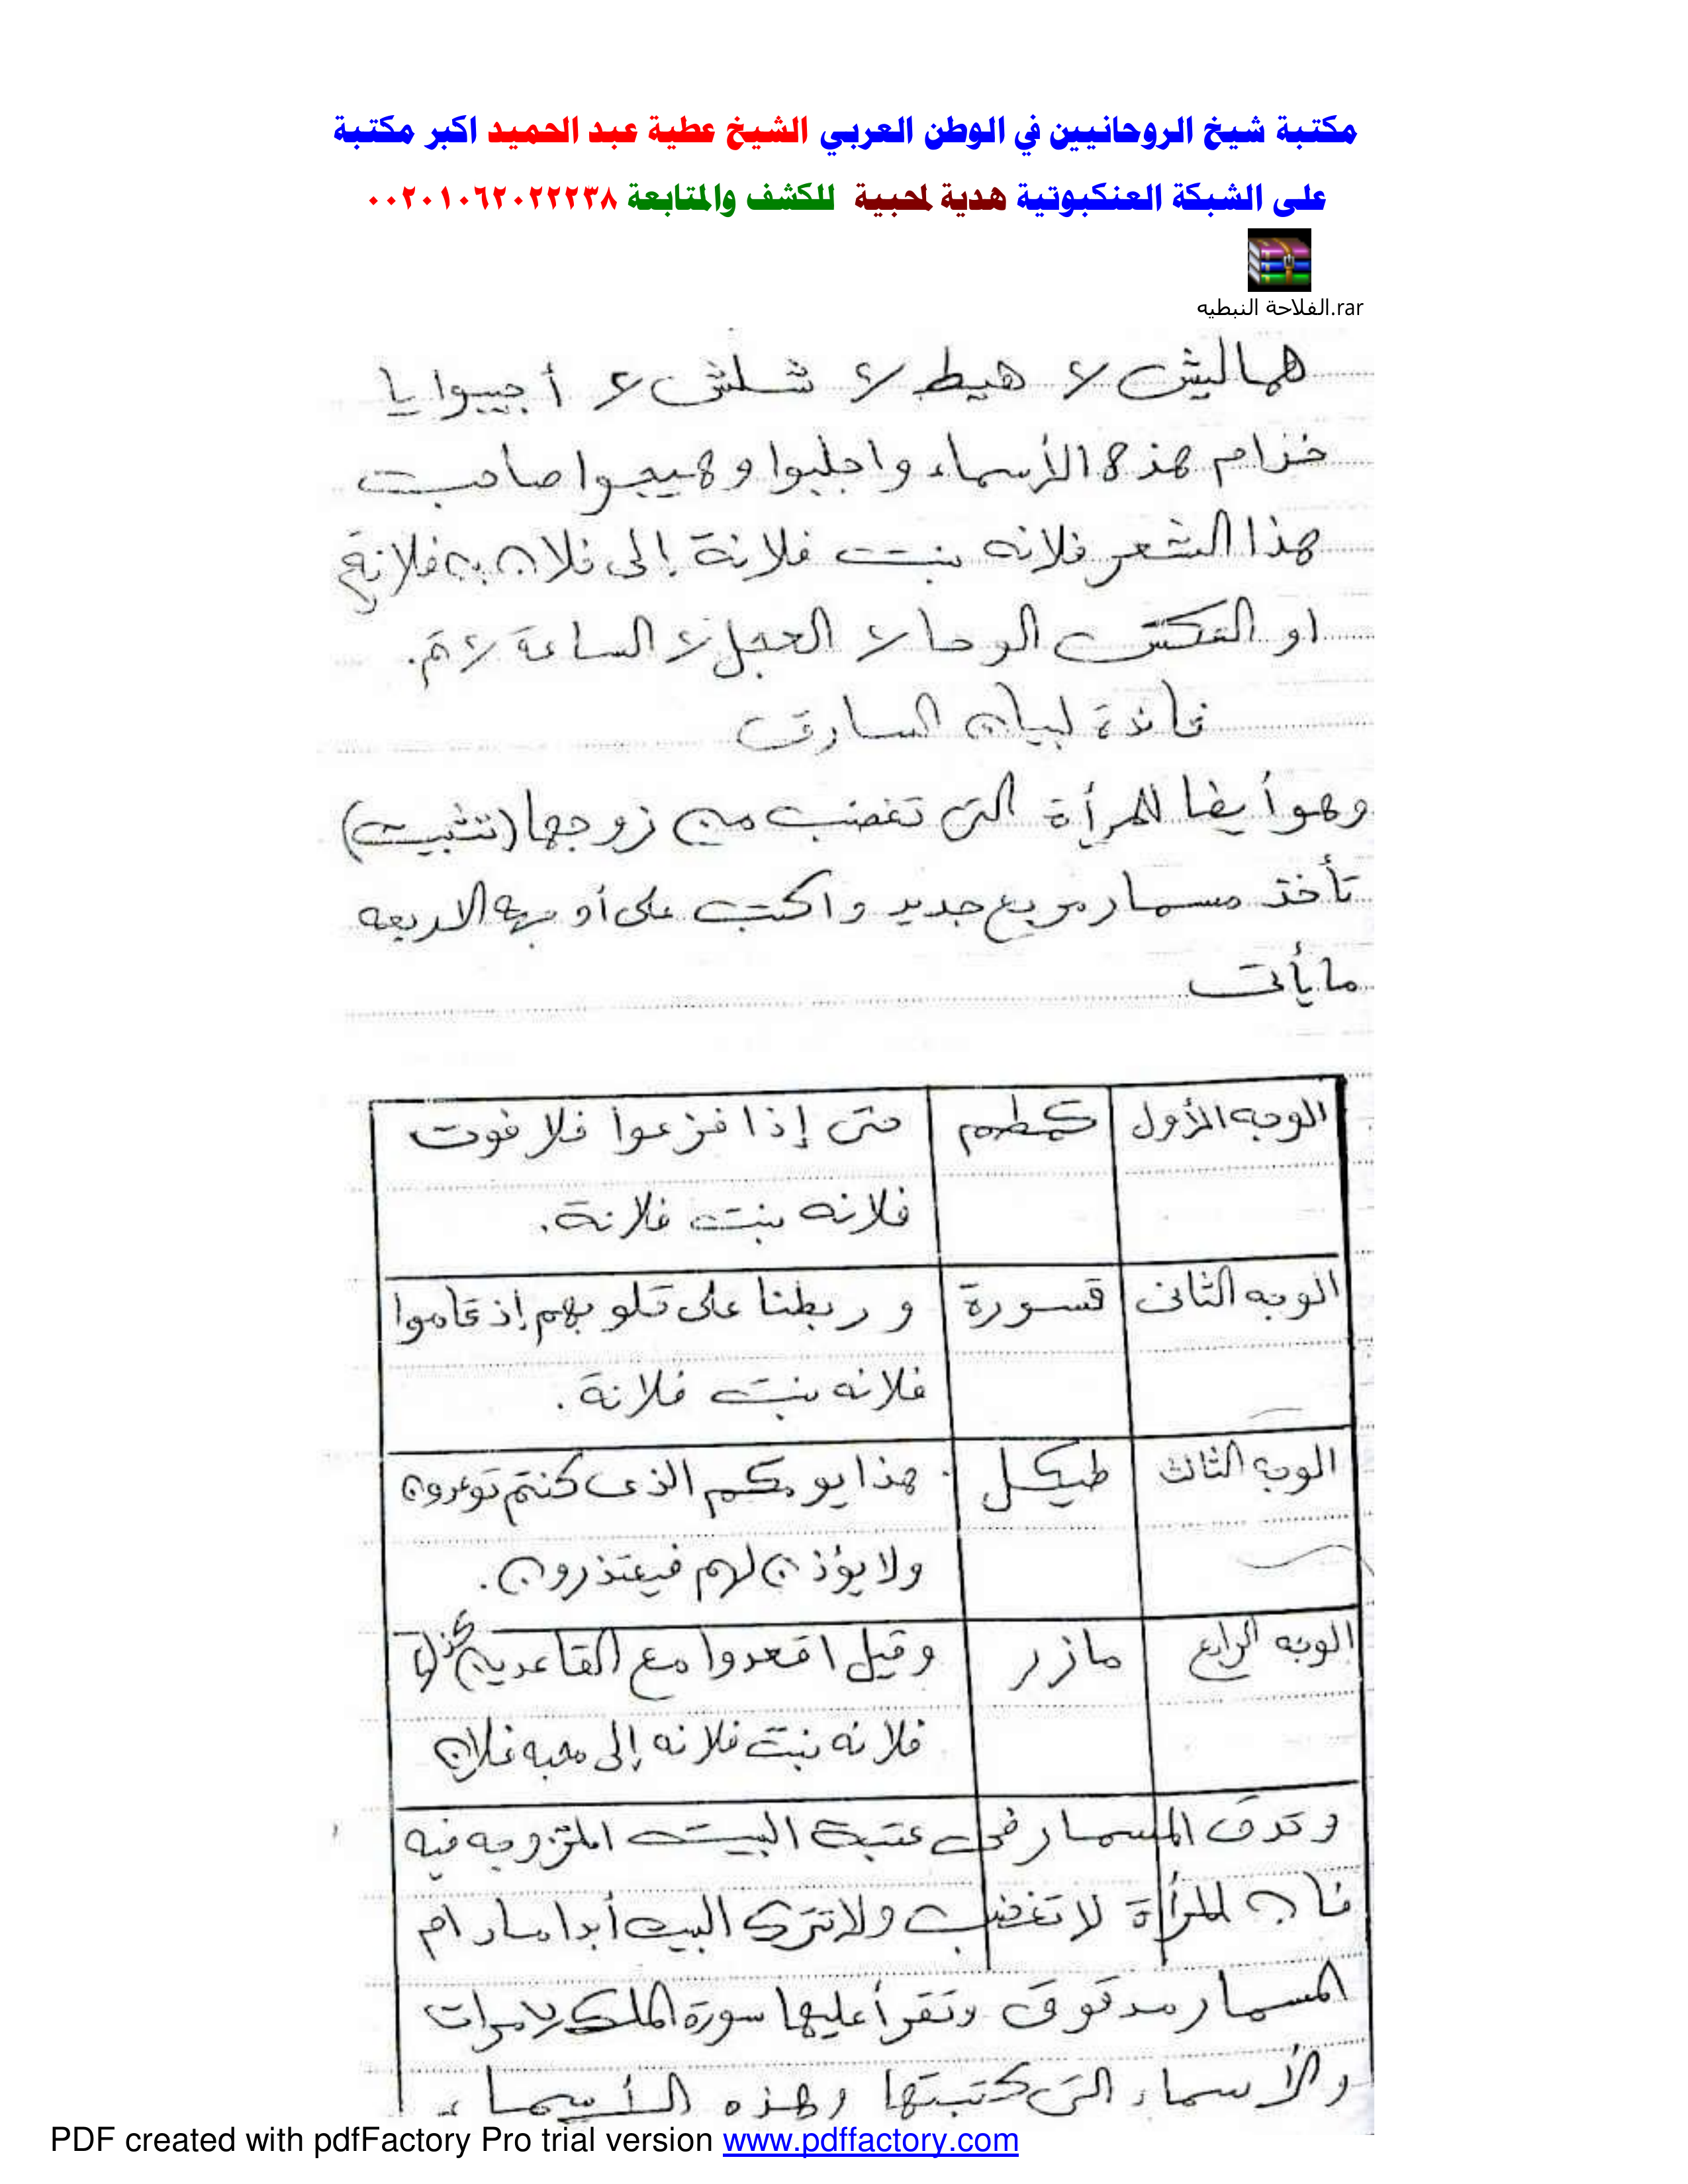 مكتبة شيخ الروحانيين في الوطن العربي الشيخ عطية عبد الحميد اكبر مكتبة
على الشبكة العنكبوتية هدية لمحبية للكشف والمتابعة ٠٠٢٠١٠٦٢٠٢٢٢٣٨
الفلاحة النبطيه.rar
هماليش ٢ هيط ٢ شلش ٢ أجيبوا يا
خدام هذه الأسماء واجلبوا وهيجوا صاحبت
هذا الشعر فلانه بنت فلانة إلى فلان بن فلانة
او العكس الوحا ٢ العجل ٢ الساعة ٢ تم.
فائدة لبيان السارق
وهو أيضا للمرأة التى تغضب من زوجها (تثبيت)
تأخذ مسمار مربع جديد واكتب على أوجهه الاربعه
ما يأتى
الوجه الأول كمطم حتى إذا فزعوا فلا فوت
فلانه بنت فلانة.
الوجه الثانى قسورة وربطنا على قلوبهم إذ قاموا
فلانه بنت فلانة.
الوجه الثالث طيكل هذا يومكم الذى كنتم توعدون
ولا يؤذن لهم فيعتذرون.
الوجه الرابع مازر وقيل اقعدوا مع القاعدين
فلانه بنت فلانه إلى محبه فلان
وتدق المسمار فى عتبة البيت المتزوجه فيه
فان المرأة لا تغضب ولا تترك البيت أبدا مادام
المسمار مدقوق وتقرأ عليها سورة الملك ٧ مرات
والأسماء التى كتبتها وهذه الأسماء
PDF created with pdfFactory Pro trial version www.pdffactory.com